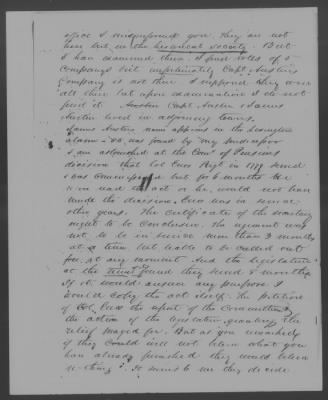 office I misinformed you, they are not
here but in the historical society. But
I have examined them. I find roles of 5
Companys but unfortunately Capt Austins
Company is not there. I supposed they were
all there but upon examination I do not
find it. Austin Capt Austin & James
Austin lived in adjoining towns.
James Austin name appears in the Lexington
alarm - 86 was found by my predecessor
I am astonished at the Com of Pensions
decision that Col Regt in 1779 served
& was Commissioned but for 6 months. He
had the act or he would not have
made the decision. was in service
other years. The certificate of the secretary
ought to be conclusive. The regiment was
not to be in service more than 3 months
at a time but liable to be called out
for at any moment And the legislature
at the time found they served 8 months
If it would answer any purpose I
would copy the act itself. The petition
of Col the report of the Committee &
the action of the legislature granting the
relief prayed for. But as you remarked
if they could will not believe what you
have already furnished they would believe
nothing. It seems to me they decide